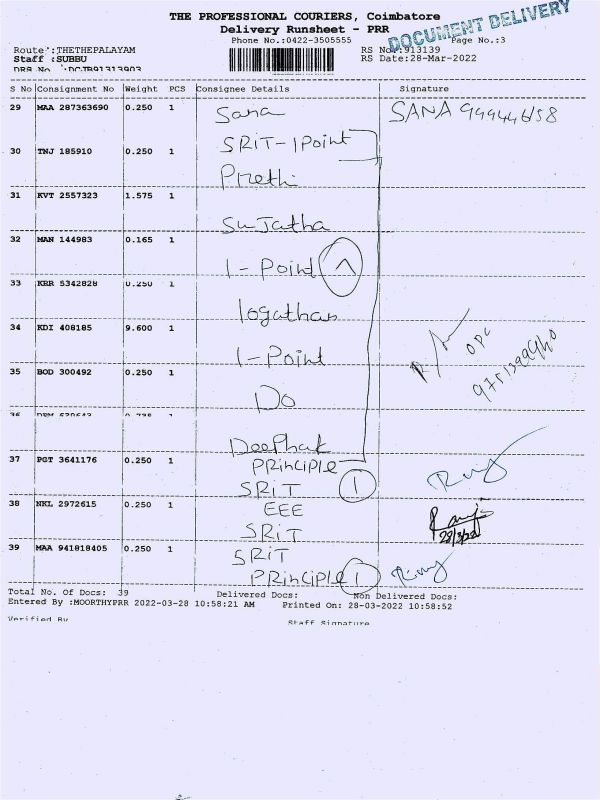 THE PROFESSIONAL COURIERS, Coimbatore
Delivery Runsheet - PRR
DOCUMENT DELIVERY
Phone No.:0422-3505555
Page No.:3
Route :THETHEPALAYAM
RS No.:913139
Staff :SUBBU
RS Date:28-Mar-2022
S No Consignment No Weight PCS Consignee Details Signature
29 MAA 287363690 0.250 1 Sana SANA
SRiT-1Point
30 TNJ 185910 0.250 1
Preethi
31 KVT 2557323 1.575 1
SuJatha
32 MAN 144983 0.165 1
1-Point
33 KRR 5342828 0.250 1
logathan
34 KDI 408185 9.600 1
1-Point
35 BOD 300492 0.250 1
Do
36
DeePhak
37 PGT 3641176 0.250 1 PRinciPlE
SRiT 1
38 NKL 2972615 0.250 1 EEE
SRiT
39 MAA 941818405 0.250 1 SRiT
PRinciPlE 1
Total No. Of Docs: 39 Delivered Docs: Non Delivered Docs:
Entered By :MOORTHYPRR 2022-03-28 10:58:21 AM Printed On: 28-03-2022 10:58:52
Verified By Staff Signature